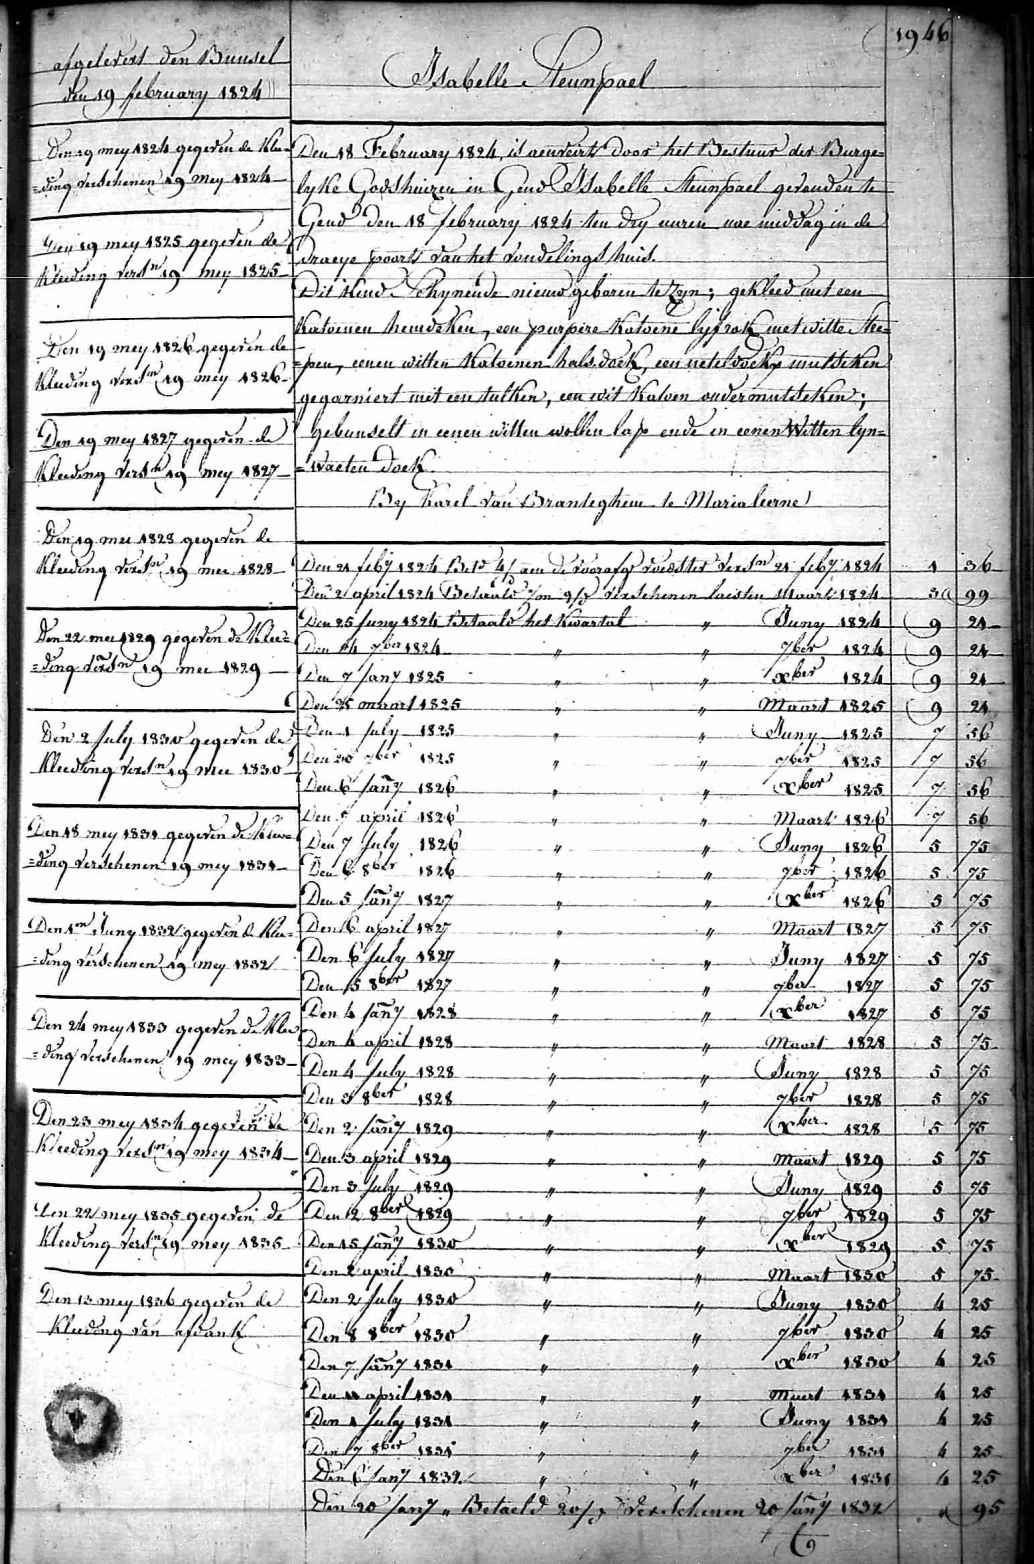 1946
Isabelle Steunpael
afgelevert den Bunsel
den 19 february 1824
Den 19 mey 1824 gegeven de Klee-
=ding verschenen 19 mey 1824
Den 19 mey 1825 gegeven de
Kleeding versn 19 mey 1825
Den 19 mey 1826 gegeven de
Kleeding versn 19 mey 1826
Den 19 mey 1827 gegeven de
Kleeding versn 19 mey 1827
Den 19 mee 1828 gegeven de
Kleeding versn 19 mee 1828
Den 22 mee 1829 gegeven de Klee=
=ding versn 19 mee 1829
Den 2 July 1830 gegeven de
Kleeding versn 19 mee 1830
Den 18 mey 1831 gegeven de Klee=
=ding verschenen 19 mey 1831
Den 1n Juny 1832 gegeven de Klee=
=ding verschenen 19 mey 1832
Den 24 mey 1833 gegeven de Klee
=ding verschenen 19 mey 1833
Den 23 mey 1834 gegeven de
Kleeding versn 19 mey 1834
Den 22 mey 1835 gegeven de
Kleeding versn 19 mey 1835
Den 13 mey 1836 gegeven de
Kleeding van afdank
Den 18 February 1824, is aenveirt door het Bestuur der Burge=
lyke Godshuizen in Gend Isabelle Steunpael gevonden te
Gend den 18 february 1824 ten dry uuren nae middag in de
draeye poorte van het vondelings huis.
Dit Kind Schynende nieuw geboren te zyn; gekleed met een
Katoenen hemdeken, een purpire Katoene lyfrok met witte Stre=
=pen, eenen witten Katoenen halsdoek, een netelsdoeky mutseken
gegarniert met een tulken, een wit Katoen ondermutseken;
gebunselt in eenen witten wollen lap ende in eenen Witten lyn=
=waeten doek.
By Karel van Branteghem te Marialeerne
Den 21 feby 1824 Betd 4/ aen de voorafg voedster versn 21 feby 1824 1 36
Den 2 april 1824 Betaald verschenen laesten Maart 1824 3 99
Den 25 Juny 1824 Betaald het Kwartal " Juny 1824 9 21
Den 14 7ber 1824 " " 7ber 1824 9 21
Den 7 Jany 1825 " " xber 1824 9 21
Den 25 maart 1825 " " Maart 1825 9 21
Den 1 July 1825 " " Juny 1825 7 56
Den 30 7ber 1825 " " 7ber 1825 7 56
Den 6 Jany 1826 " " xber 1825 7 56
Den 5 april 1826 " " Maart 1826 7 56
Den 7 July 1826 " " Juny 1826 5 75
Den 6 8ber 1826 " " 7ber 1826 5 75
Den 5 Jany 1827 " " xber 1826 5 75
Den 6 april 1827 " " Maart 1827 5 75
Den 6 July 1827 " " Juny 1827 5 75
Den 5 8ber 1827 " " 7ber 1827 5 75
Den 4 Jany 1828 " " xber 1827 5 75
Den 4 april 1828 " " Maart 1828 5 75
Den 4 July 1828 " " Juny 1828 5 75
Den 3 8ber 1828 " " 7ber 1828 5 75
Den 2 Jany 1829 " " xber 1828 5 75
Den 3 april 1829 " " Maart 1829 5 75
Den 3 July 1829 " " Juny 1829 5 75
Den 2 8ber 1829 " " 7ber 1829 5 75
Den 15 Jany 1830 " " xber 1829 5 75
Den 2 april 1830 " " Maart 1830 5 75
Den 2 July 1830 " " Juny 1830 4 25
Den 8 8ber 1830 " " 7ber 1830 4 25
Den 7 Jany 1831 " " xber 1830 4 25
Den 11 april 1831 " " Maert 1831 4 25
Den 1 July 1831 " " Juny 1831 4 25
Den 7 8ber 1831 " " 7ber 1831 4 25
Den 6 Jany 1832 " " xber 1831 4 25
Den 20 Jany " Betaeld 20/d verschenen 20 Jany 1832 " 95